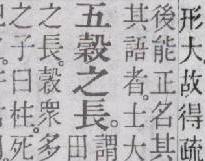 形大。故得疏
後能正名其
其語者。士大
五穀之長。謂
田
之長。穀衆多
之子曰柱。死